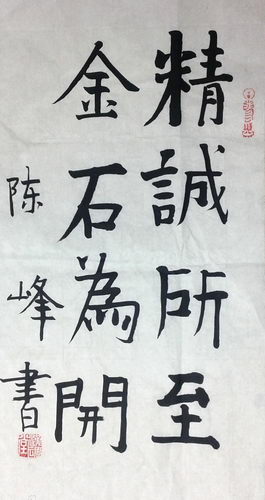 精誠所至
金石為開
陈峰書